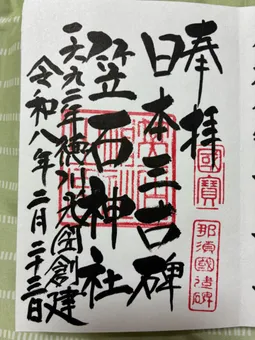 奉拝
國寶
那須國造碑
日本三古碑
笠石神社
一六九二年徳川光圀創建
令和八年二月二十三日